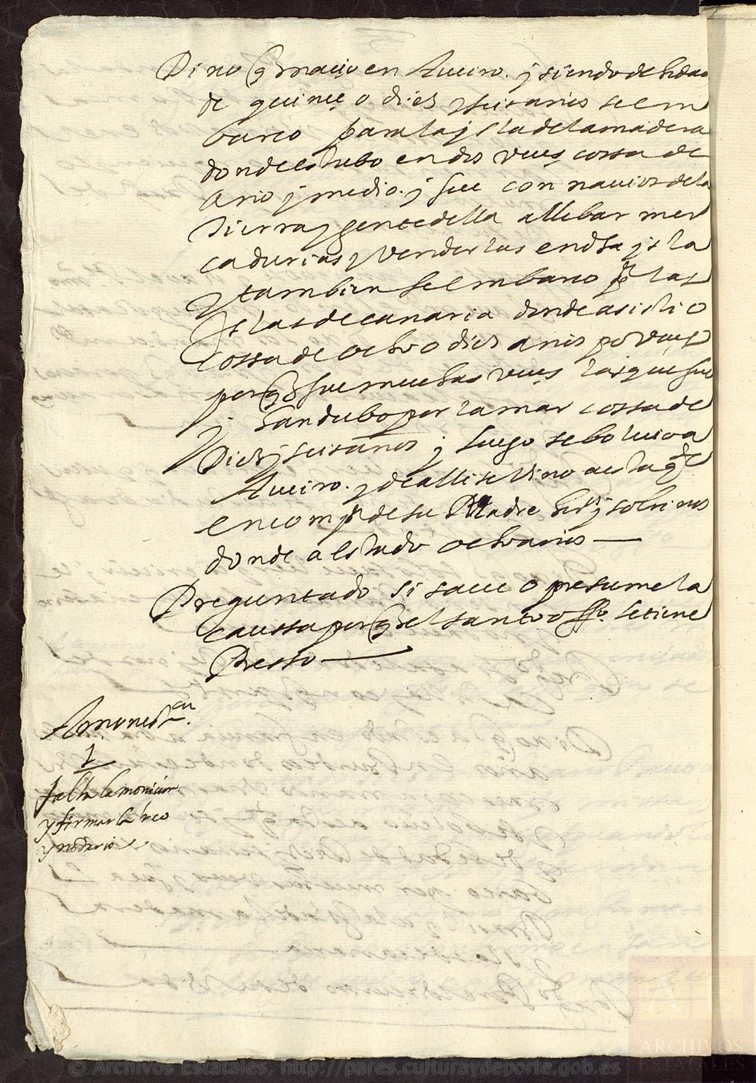 Dixo q̃ nacio en Aueiro. y siendo de hedad
de quinçe o diez y seis años se em
barco para la ysla de la madera
donde estubo en dos veçes cossa de
Año y medio. y fue con nauios de la
tierra y gente della a llebar mer
cadurias y venderlas en dha ysla
y tambien se embarco pª las
Yslas de canaria donde asistio
cossa de ocho o diez años por veçes
porq̃ fue muchas veçes las que fue
y handubo por la mar cossa de
Diez y seis años y luego se boluio a
Aueiro. y de alli se vino a esta
en comp.ª de su Madre y sobrinos
donde a estado ocho años
Preguntado si saue o presume la
caussa porq̃ el santo offº. le tiene
Presso
Amonest.on
1
falta la monicion
y firmar la reo
y notario
ARCHIVOS
ESTATALES
© Archivos Estatales, http://pares.culturaydeporte.gob.es